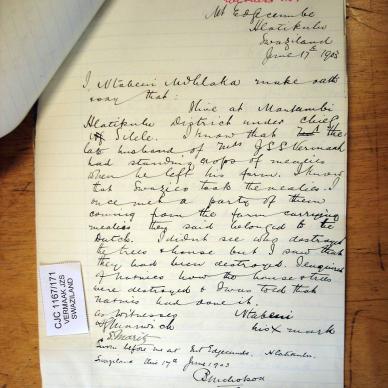 Mt Edgecombe
Hlatikulu
Swaziland
June 17th 1903
I, Ntabeni Mdhlaka make oath
say that:
I live at Mantambi
Hlatikulu District under chief
Silele. I know that the
late husband of Mrs J.S.S. Vermaak
had standing crops of mealies
when he left his farm. I know
that Swazies took the mealies. I
once met a party of them
coming from the farm carrying
mealies they said belonged to the
Dutch. I didn't see who destroyed
the trees & house but I saw that
they had been destroyed. I enquired
of natives how the house & trees
were destroyed & I was told that
natives had done it.
As witnesses
Ntabeni
his X mark
Sworn before me at Mt Edgecombe, Hlatikulu.
Swaziland this 17th June 1903
CJC 1167/171
VERMAAK JZS
SWAZILAND